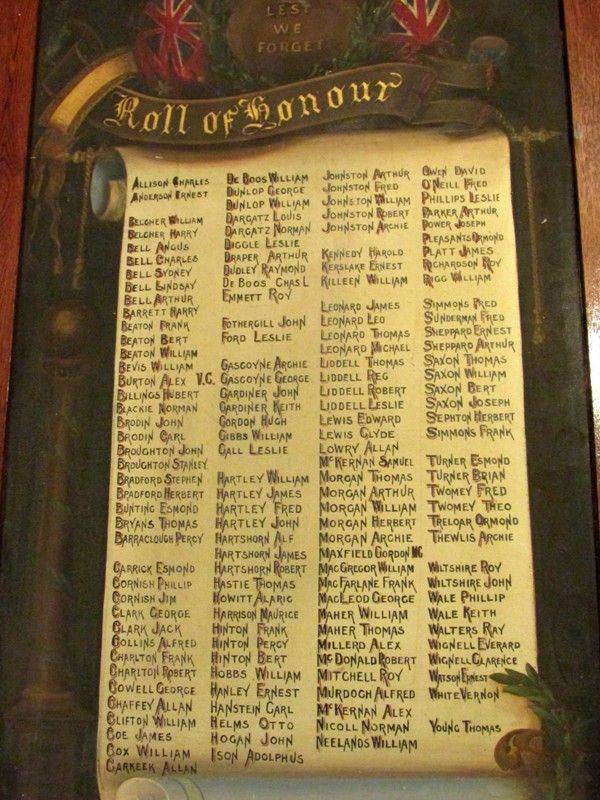 LEST
WE
FORGET
Roll of Honour
ALLISON CHARLES
ANDERSON ERNEST
BELCHER WILLIAM
BELCHER HARRY
BELL ANGUS
BELL CHARLES
BELL SYDNEY
BELL LINDSAY
BELL ARTHUR
BARRETT HARRY
BEATON FRANK
BEATON BERT
BEATON WILLIAM
BEVIS WILLIAM
BURTON ALEX V.C.
BILLINGS HUBERT
BLACKIE NORMAN
BRODIN JOHN
BRODIN CARL
BROUGHTON JOHN
BROUGHTON STANLEY
BRADFORD STEPHEN
BRADFORD HERBERT
BUNTING ESMOND
BRYANS THOMAS
BARRACLOUGH PERCY
CARRICK ESMOND
CORNISH PHILLIP
CORNISH JIM
CLARK GEORGE
CLARK JACK
COLLINS ALFRED
CHARLTON FRANK
CHARLTON ROBERT
COWELL GEORGE
CHAFFEY ALLAN
CLIFTON WILLIAM
COE JAMES
COX WILLIAM
CARKEEK ALLAN
DE BOOS WILLIAM
DUNLOP GEORGE
DUNLOP WILLIAM
DARGATZ LOUIS
DARGATZ NORMAN
DIGGLE LESLIE
DRAPER ARTHUR
DUDLEY RAYMOND
DE BOOS CHAS L
EMMETT ROY
FOTHERGILL JOHN
FORD LESLIE
GASCOYNE ARCHIE
GASCOYNE GEORGE
GARDINER JOHN
GARDINER KEITH
GORDON HUGH
GIBBS WILLIAM
GALL LESLIE
HARTLEY WILLIAM
HARTLEY JAMES
HARTLEY FRED
HARTLEY JOHN
HARTSHORN ALF
HARTSHORN JAMES
HARTSHORN ROBERT
HASTIE THOMAS
HOWITT ALARIC
HARRISON MAURICE
HINTON FRANK
HINTON PERCY
HINTON BERT
HOBBS WILLIAM
HANLEY ERNEST
HANSTEIN CARL
HELMS OTTO
HOGAN JOHN
ISON ADOLPHUS
JOHNSTON ARTHUR
JOHNSTON FRED
JOHNSTON WILLIAM
JOHNSTON ROBERT
JOHNSTON ARCHIE
KENNEDY HAROLD
KERSLAKE ERNEST
KILLEEN WILLIAM
LEONARD JAMES
LEONARD LEO
LEONARD THOMAS
LEONARD MICHAEL
LIDDELL THOMAS
LIDDELL REG
LIDDELL ROBERT
LIDDELL LESLIE
LEWIS EDWARD
LEWIS CLYDE
LOWRY ALLAN
McKERNAN SAMUEL
MORGAN THOMAS
MORGAN ARTHUR
MORGAN WILLIAM
MORGAN HERBERT
MORGAN ARCHIE
MAXFIELD GORDON MC
MACGREGOR WILLIAM
MACFARLANE FRANK
MACLEOD GEORGE
MAHER WILLIAM
MAHER THOMAS
MILLERD ALEX
McDONALD ROBERT
MITCHELL ROY
MURDOCH ALFRED
McKERNAN ALEX
NICOLL NORMAN
NEELANDS WILLIAM
OWEN DAVID
O'NEILL FRED
PHILLIPS LESLIE
PARKER ARTHUR
POWER JOSEPH
PLEASANTS ORMOND
PLATT JAMES
RICHARDSON ROY
RIGG WILLIAM
SIMMONS FRED
SUNDERMAN FRED
SHEPPARD ERNEST
SHEPPARD ARTHUR
SAXON THOMAS
SAXON WILLIAM
SAXON BERT
SAXON JOSEPH
SEPHTON HERBERT
SIMMONS FRANK
TURNER ESMOND
TURNER BRIAN
TWOMEY FRED
TWOMEY THEO
TRELOAR ORMOND
THEWLIS ARCHIE
WILTSHIRE ROY
WILTSHIRE JOHN
WALE PHILLIP
WALE KEITH
WALTERS RAY
WIGNELL EVERARD
WIGNELL CLARENCE
WATSON ERNEST
WHITE VERNON
YOUNG THOMAS